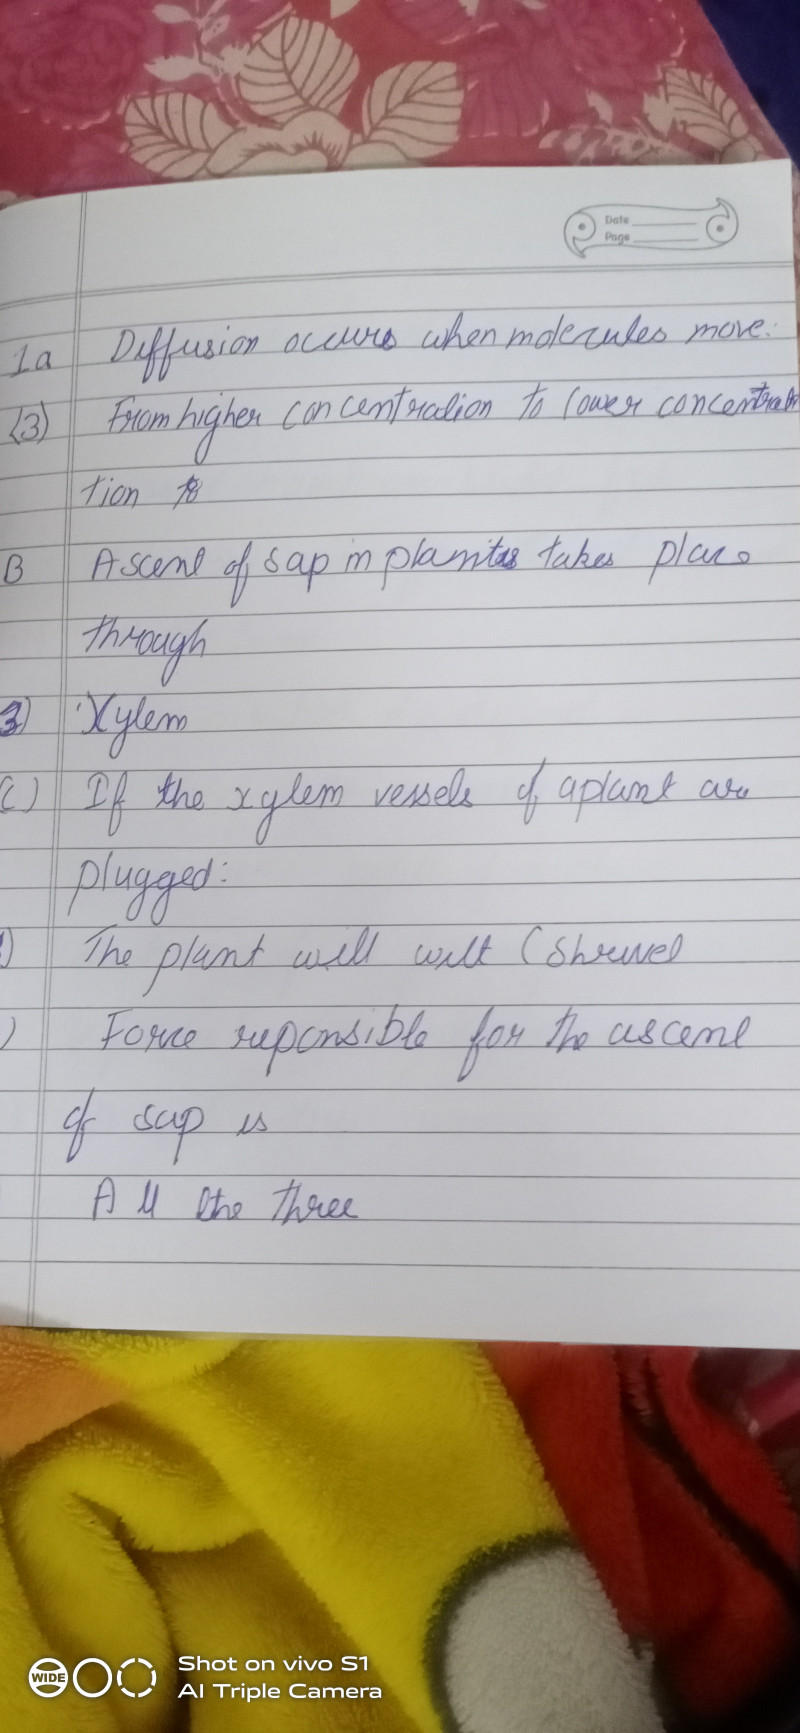 Date
Page
1a Diffusion occurs when molecules move:
(3) From higher concentration to lower concentratio
tion
B Ascent of sap in plants takes place
through
3) Xylem
C) If the xylem vessels of a plant are
plugged:
) The plant will wilt (Shrivel
) Force reponsible for the ascent
of sap is
All the three
WIDE
Shot on vivo S1
AI Triple Camera